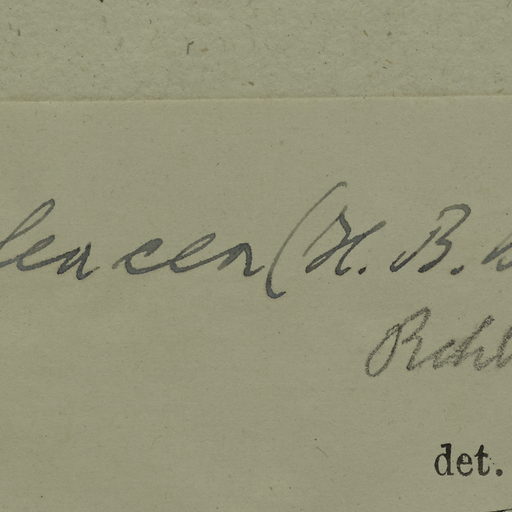 leacea (H. B.
Rchb
det.